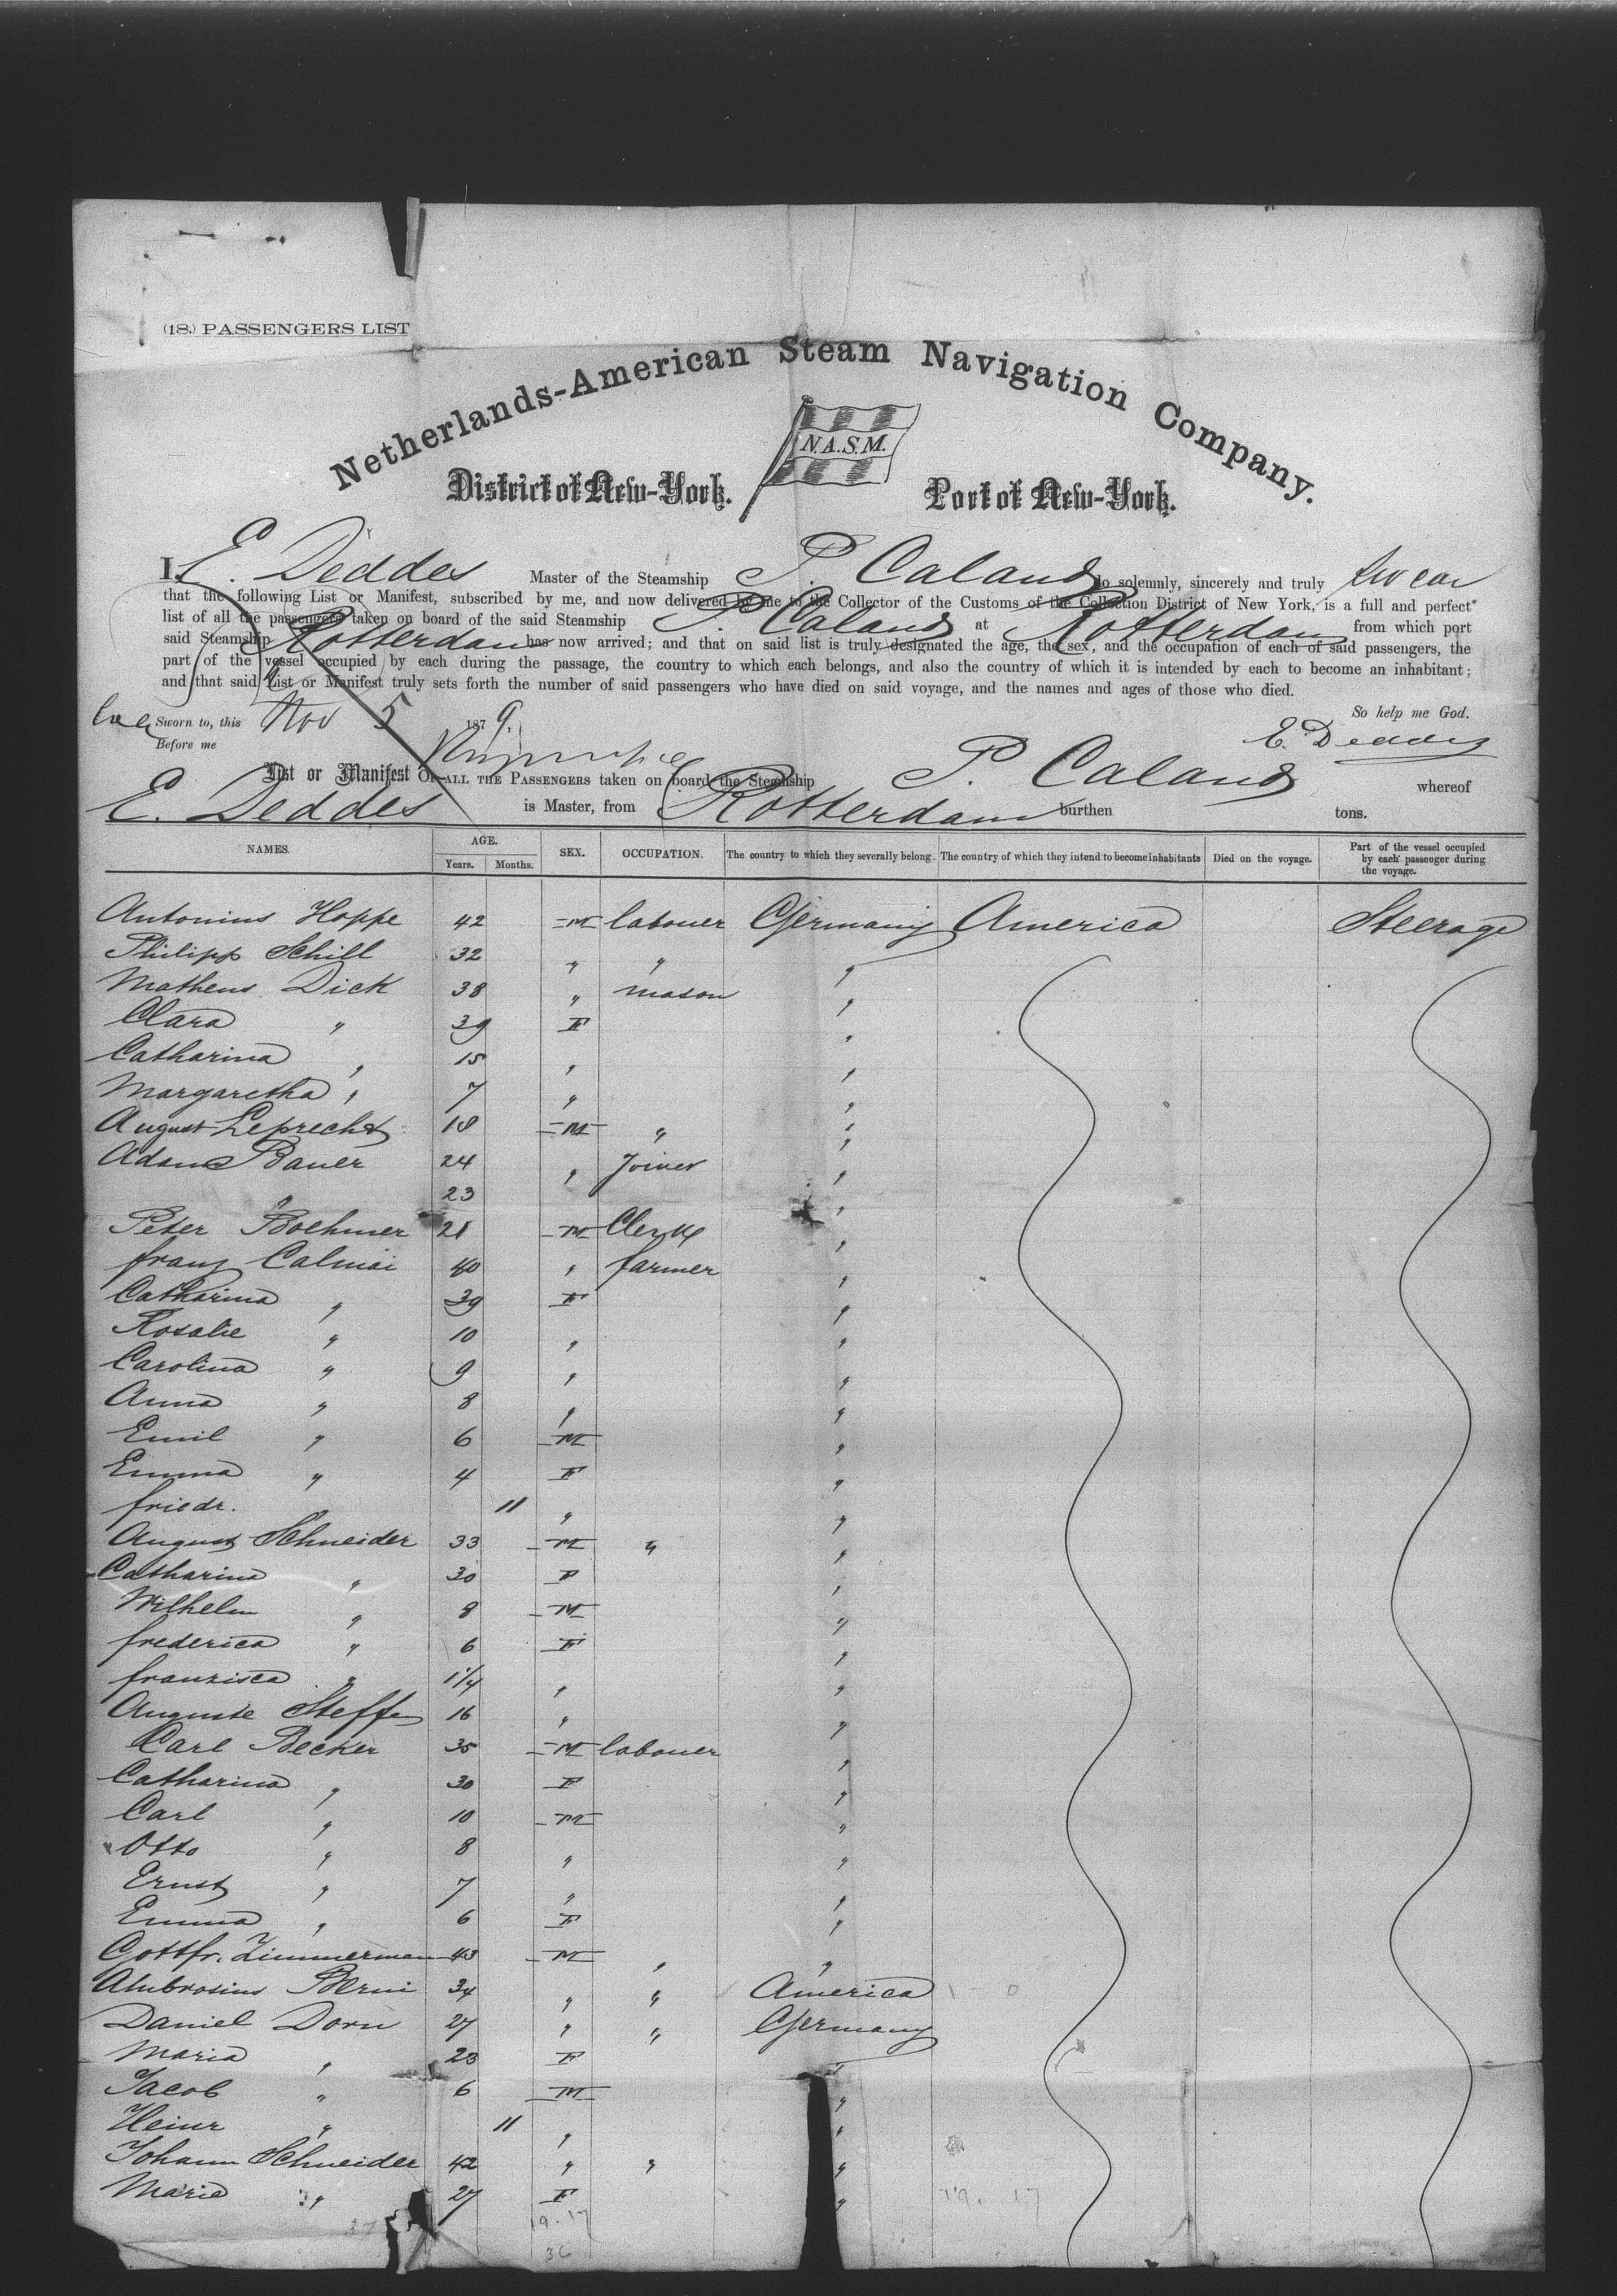 (18.) PASSENGERS LIST
Netherlands-American Steam Navigation Company.
N.A.S.M.
District of New-York. Port of New-York.
I, E. Deddes Master of the Steamship P. Caland do solemnly, sincerely and truly swear
that the following List or Manifest, subscribed by me, and now delivered by me to the Collector of the Customs of the Collection District of New York, is a full and perfect
list of all the passengers taken on board of the said Steamship P. Caland at Rotterdam from which port
said Steamship Rotterdam has now arrived; and that on said list is truly designated the age, the sex, and the occupation of each of said passengers, the
part of the vessel occupied by each during the passage, the country to which each belongs, and also the country of which it is intended by each to become an inhabitant;
and that said List or Manifest truly sets forth the number of said passengers who have died on said voyage, and the names and ages of those who died.
So help me God.
Sworn to, this Nov 5 1879.
Before me
E. Deddes
List or Manifest OF ALL THE PASSENGERS taken on board the Steamship P. Caland whereof
E. Deddes is Master, from Rotterdam burthen tons.
NAMES. AGE. Years. Months. SEX. OCCUPATION. The country to which they severally belong. The country of which they intend to become inhabitants Died on the voyage. Part of the vessel occupied by each passenger during the voyage.
Antonius Hoppe 42 M labouer Germany America Steerage
Philipp Schill 32 " " "
Matheus Dick 38 " mason "
Clara " 39 F "
Catharina " 15 " "
Margaretha " 7 " "
August Leprecht 18 M " "
Adam Bauer 24 " Joiner "
" 23 "
Peter Boehmer 21 M Clerk "
franz Calmai 40 " farmer "
Catharina " 39 F "
Rosalie " 10 " "
Carolina " 9 " "
Anna " 8 " "
Emil " 6 M "
Emma " 4 F "
friedr. 11 " "
August Schneider 33 M " "
Catharina " 30 F "
Wilhelm " 8 M "
frederica " 6 F "
franzisca " 1 1/4 " "
Auguste Steffen 16 " "
Carl Becker 35 M labouer "
Catharina " 30 F "
Carl " 10 M "
Otto " 8 " "
Ernst " 7 " "
Emma " 6 F "
Gottfr. Zimmerman 43 M " "
Ambrosius Berni 34 " " America
Daniel Dorn 27 " " Germany
Maria " 23 F "
Jacob " 6 M "
Heinr " 11 " "
Johann Schneider 42 " " "
Marie " 27 F "
19. 17 19. 17
36